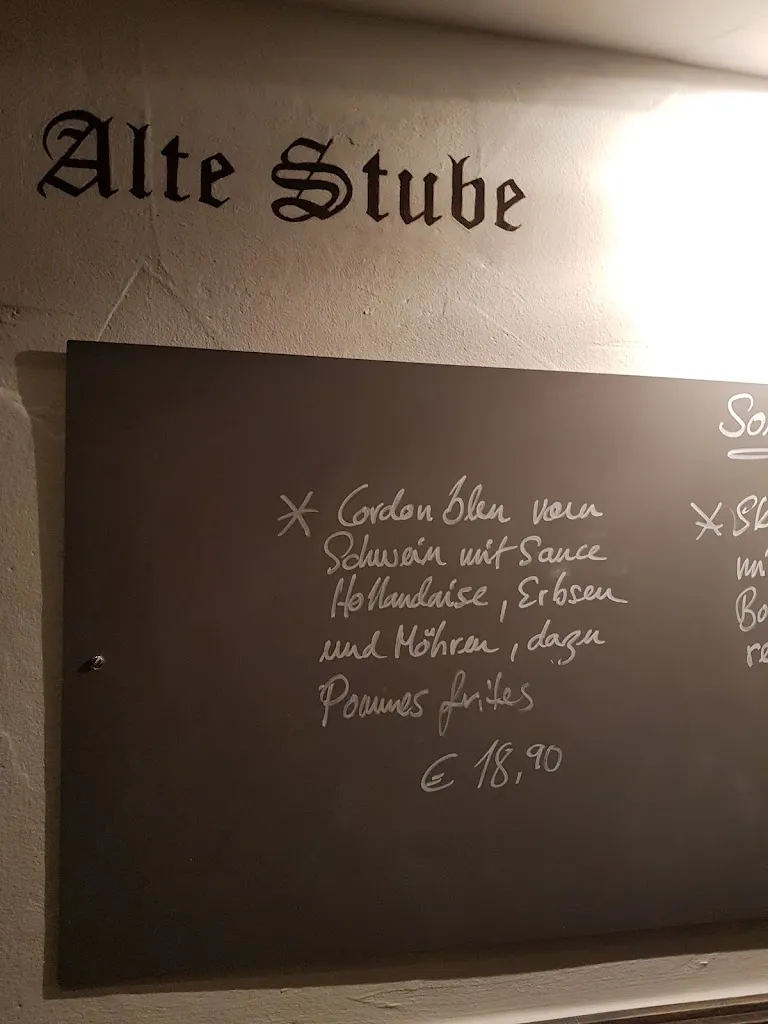 Alte Stube
* Cordon bleu vom
Schwein mit Sauce
Hollandaise, Erbsen
und Möhren, dazu
Pommes frites
€ 18,90